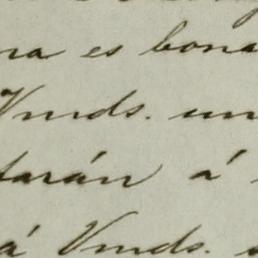 na es bona
Vmds. un
tarán á
á Vmds.